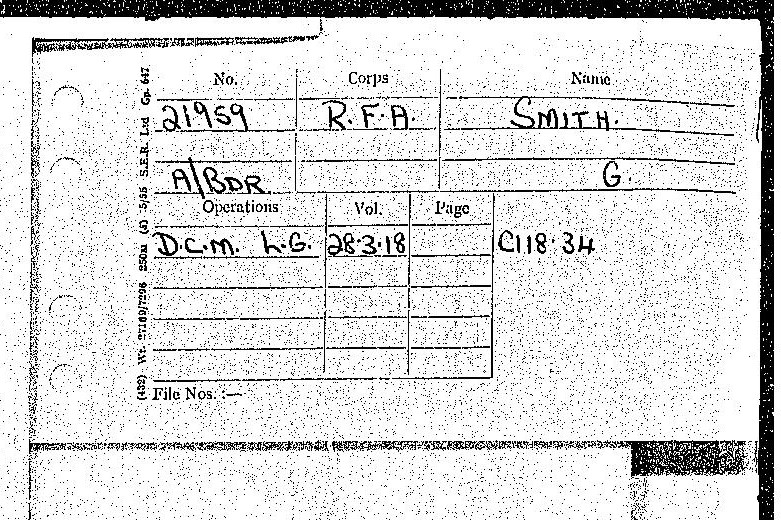 No. Corps Name
21959 R.F.A. SMITH.
A/BDR. G.
Operations Vol. Page
D.C.M. L.G. 28·3·18 C118·34
File Nos. :—
(432) Wt. 27169/7296 250m (4) 5/55 S.E.R. Ltd Gp. 647